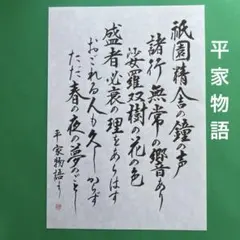 平家物語
祇園精舎の鐘の声
諸行無常の響あり
娑羅双樹の花の色
盛者必衰の理をあらはす
おごれる人も久しからず
ただ春の夜の夢のごとし
平家物語より